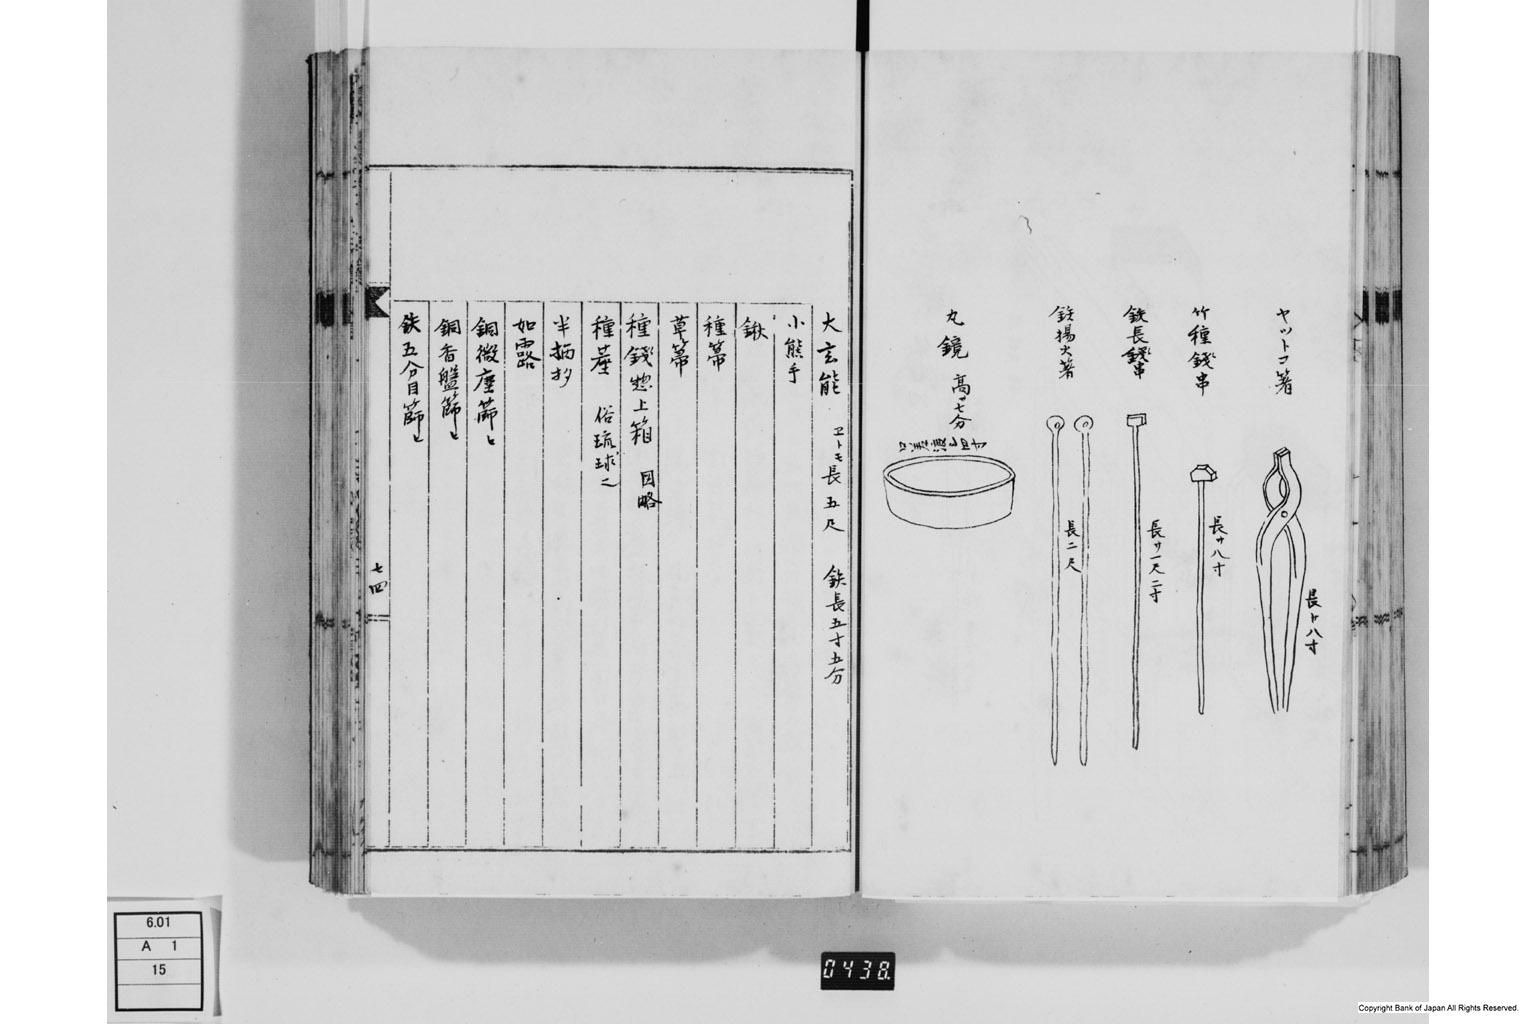 ヤットコ箸
長サ八寸
竹種錢串
長サ八寸
鉄長錢串
長サ一尺二寸
鉄揚火箸
長二尺
丸鏡 高サ七分
大玄能 ヱトモ長五尺 鉄長五寸五分
小熊手
鍬
種箒
草箒
種錢惣上箱 図略
種蓙 俗琉球
半柄杓
如露
銅微塵篩
銅香盤篩
鉄五分目篩
七四
6.01
A 1
15
0438.
Copyright Bank of Japan All Rights Reserved.